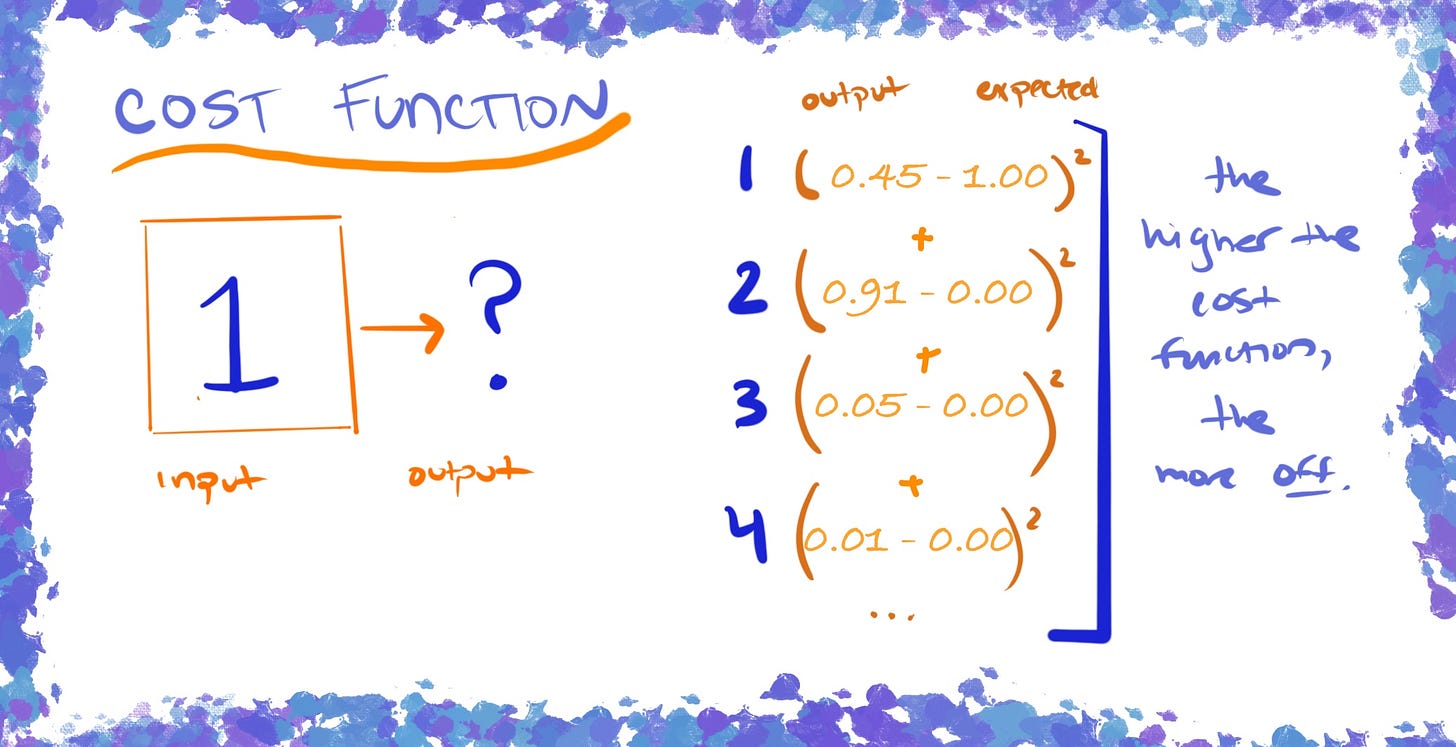 COST FUNCTION
1 → ?
input output
output expected
1 (0.45 - 1.00)²
+
2 (0.91 - 0.00)²
+
3 (0.05 - 0.00)²
+
4 (0.01 - 0.00)²
...
the
higher the
cost
function,
the
more off.